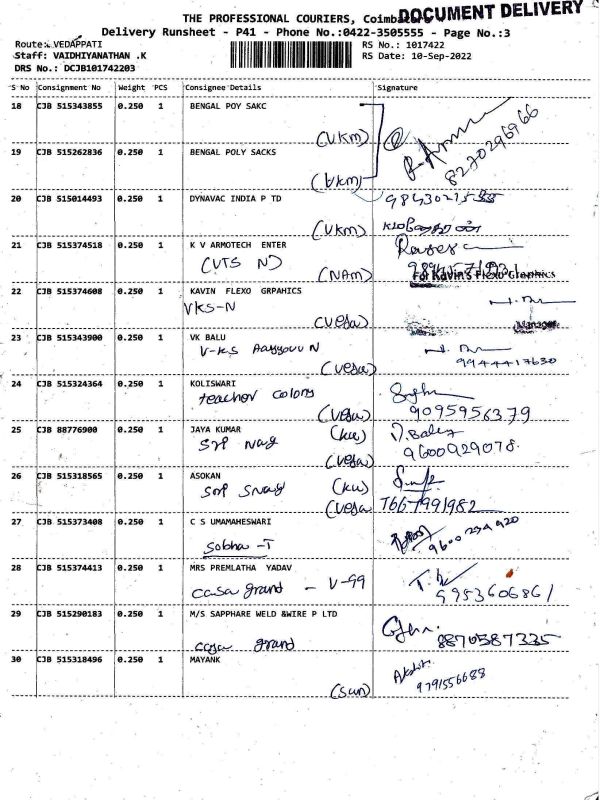 THE PROFESSIONAL COURIERS, Coimbatore
DOCUMENT DELIVERY
Delivery Runsheet - P41 - Phone No.:0422-3505555 - Page No.:3
Route: VEDAPPATI
RS No.: 1017422
Staff: VAIDHIYANATHAN .K
RS Date: 10-Sep-2022
DRS No.: DCJB101742203
S No Consignment No Weight PCS Consignee Details Signature
18 CJB 515343855 0.250 1 BENGAL POY SAKC
(VKm)
8270296966
19 CJB 515262836 0.250 1 BENGAL POLY SACKS
(VKm)
20 CJB 515014493 0.250 1 DYNAVAC INDIA P TD
(VKm)
21 CJB 515374518 0.250 1 K V ARMOTECH ENTER
(NAm)
For Kavin's Flexo Graphics
22 CJB 515374608 0.250 1 KAVIN FLEXO GRPAHICS
VKS-N
(Vesa)
Manager
23 CJB 515343900 0.250 1 VK BALU
(Vesa)
9944417630
24 CJB 515324364 0.250 1 KOLISWARI
teacher colony
(Vesa)
9095956379
25 CJB 88776900 0.250 1 JAYA KUMAR
(ku)
(Vesa)
9600929078.
26 CJB 515318565 0.250 1 ASOKAN
(ku)
(Vesa)
27 CJB 515373408 0.250 1 C S UMAMAHESWARI
Sobha -T
28 CJB 515374413 0.250 1 MRS PREMLATHA YADAV
casa grand - V-99
9953606861
29 CJB 515290183 0.250 1 M/S SAPPHARE WELD &WIRE P LTD
casa grand
8870587335
30 CJB 515318496 0.250 1 MAYANK
(sun)
9791556688